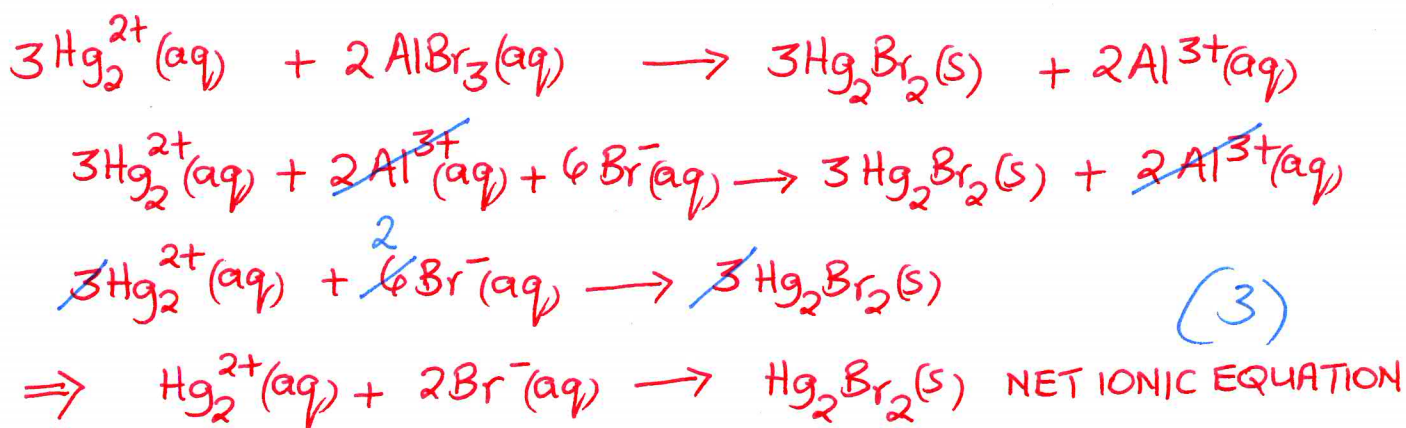 3Hg₂²⁺(aq) + 2AlBr₃(aq) → 3Hg₂Br₂(s) + 2Al³⁺(aq)
3Hg₂²⁺(aq) + 2Al³⁺(aq) + 6Br⁻(aq) → 3Hg₂Br₂(s) + 2Al³⁺(aq)
2
3Hg₂²⁺(aq) + 6Br⁻(aq) → 3Hg₂Br₂(s)
(3)
⇒ Hg₂²⁺(aq) + 2Br⁻(aq) → Hg₂Br₂(s) NET IONIC EQUATION